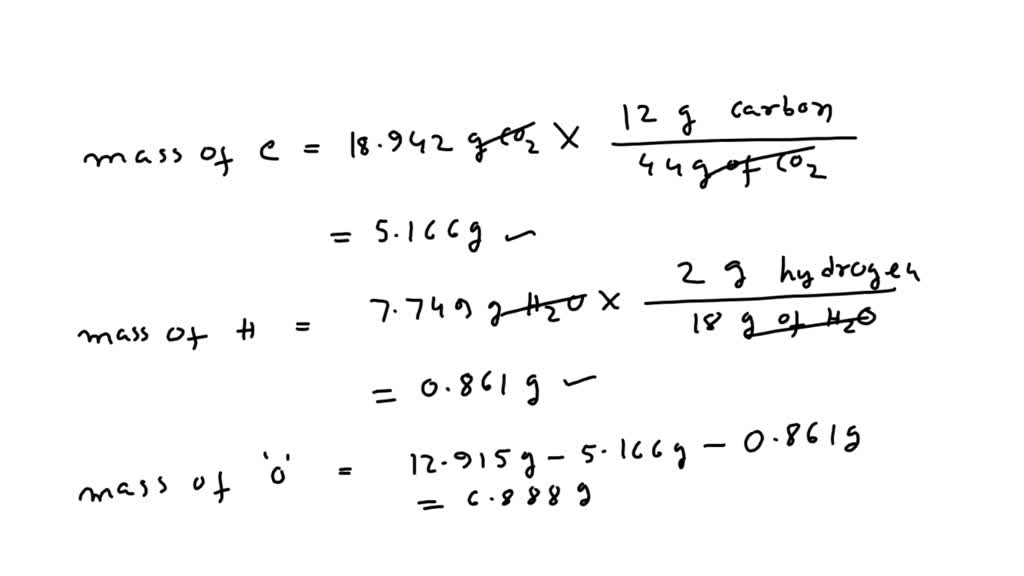 mass of C = 18.942 g CO2 × 12 g carbon / 44 g of CO2
= 5.166g ✓
mass of H = 7.749 g H2O × 2 g hydrogen / 18 g of H2O
= 0.861 g ✓
mass of 'O' = 12.915g – 5.166g – 0.861g
= 6.888 g